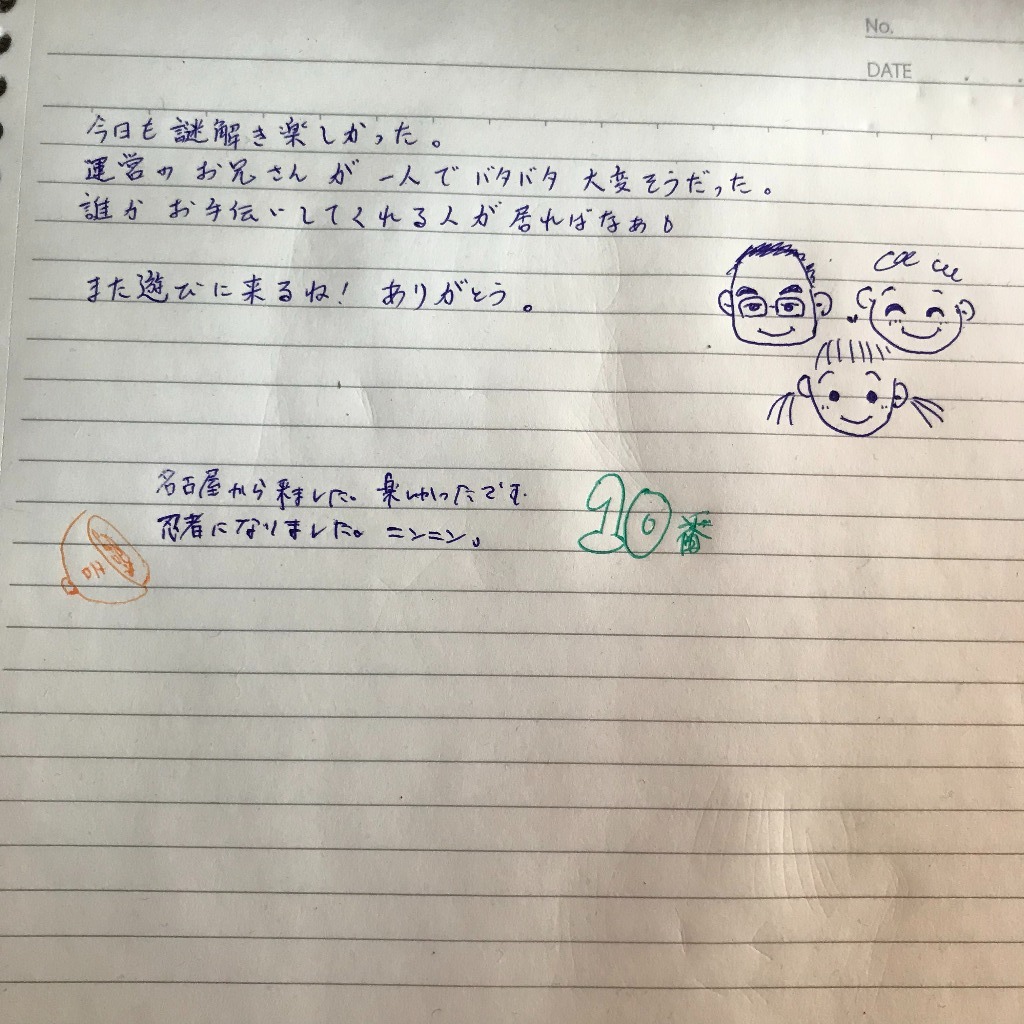 No.
DATE
今日も謎解き楽しかった。
運営のお兄さんが一人でバタバタ大変そうだった。
誰かお手伝いしてくれる人が居ればなぁ。
また遊びに来るね！ ありがとう。
名古屋から来ました。楽しかったです。
忍者になりました。ニンニン。
10番